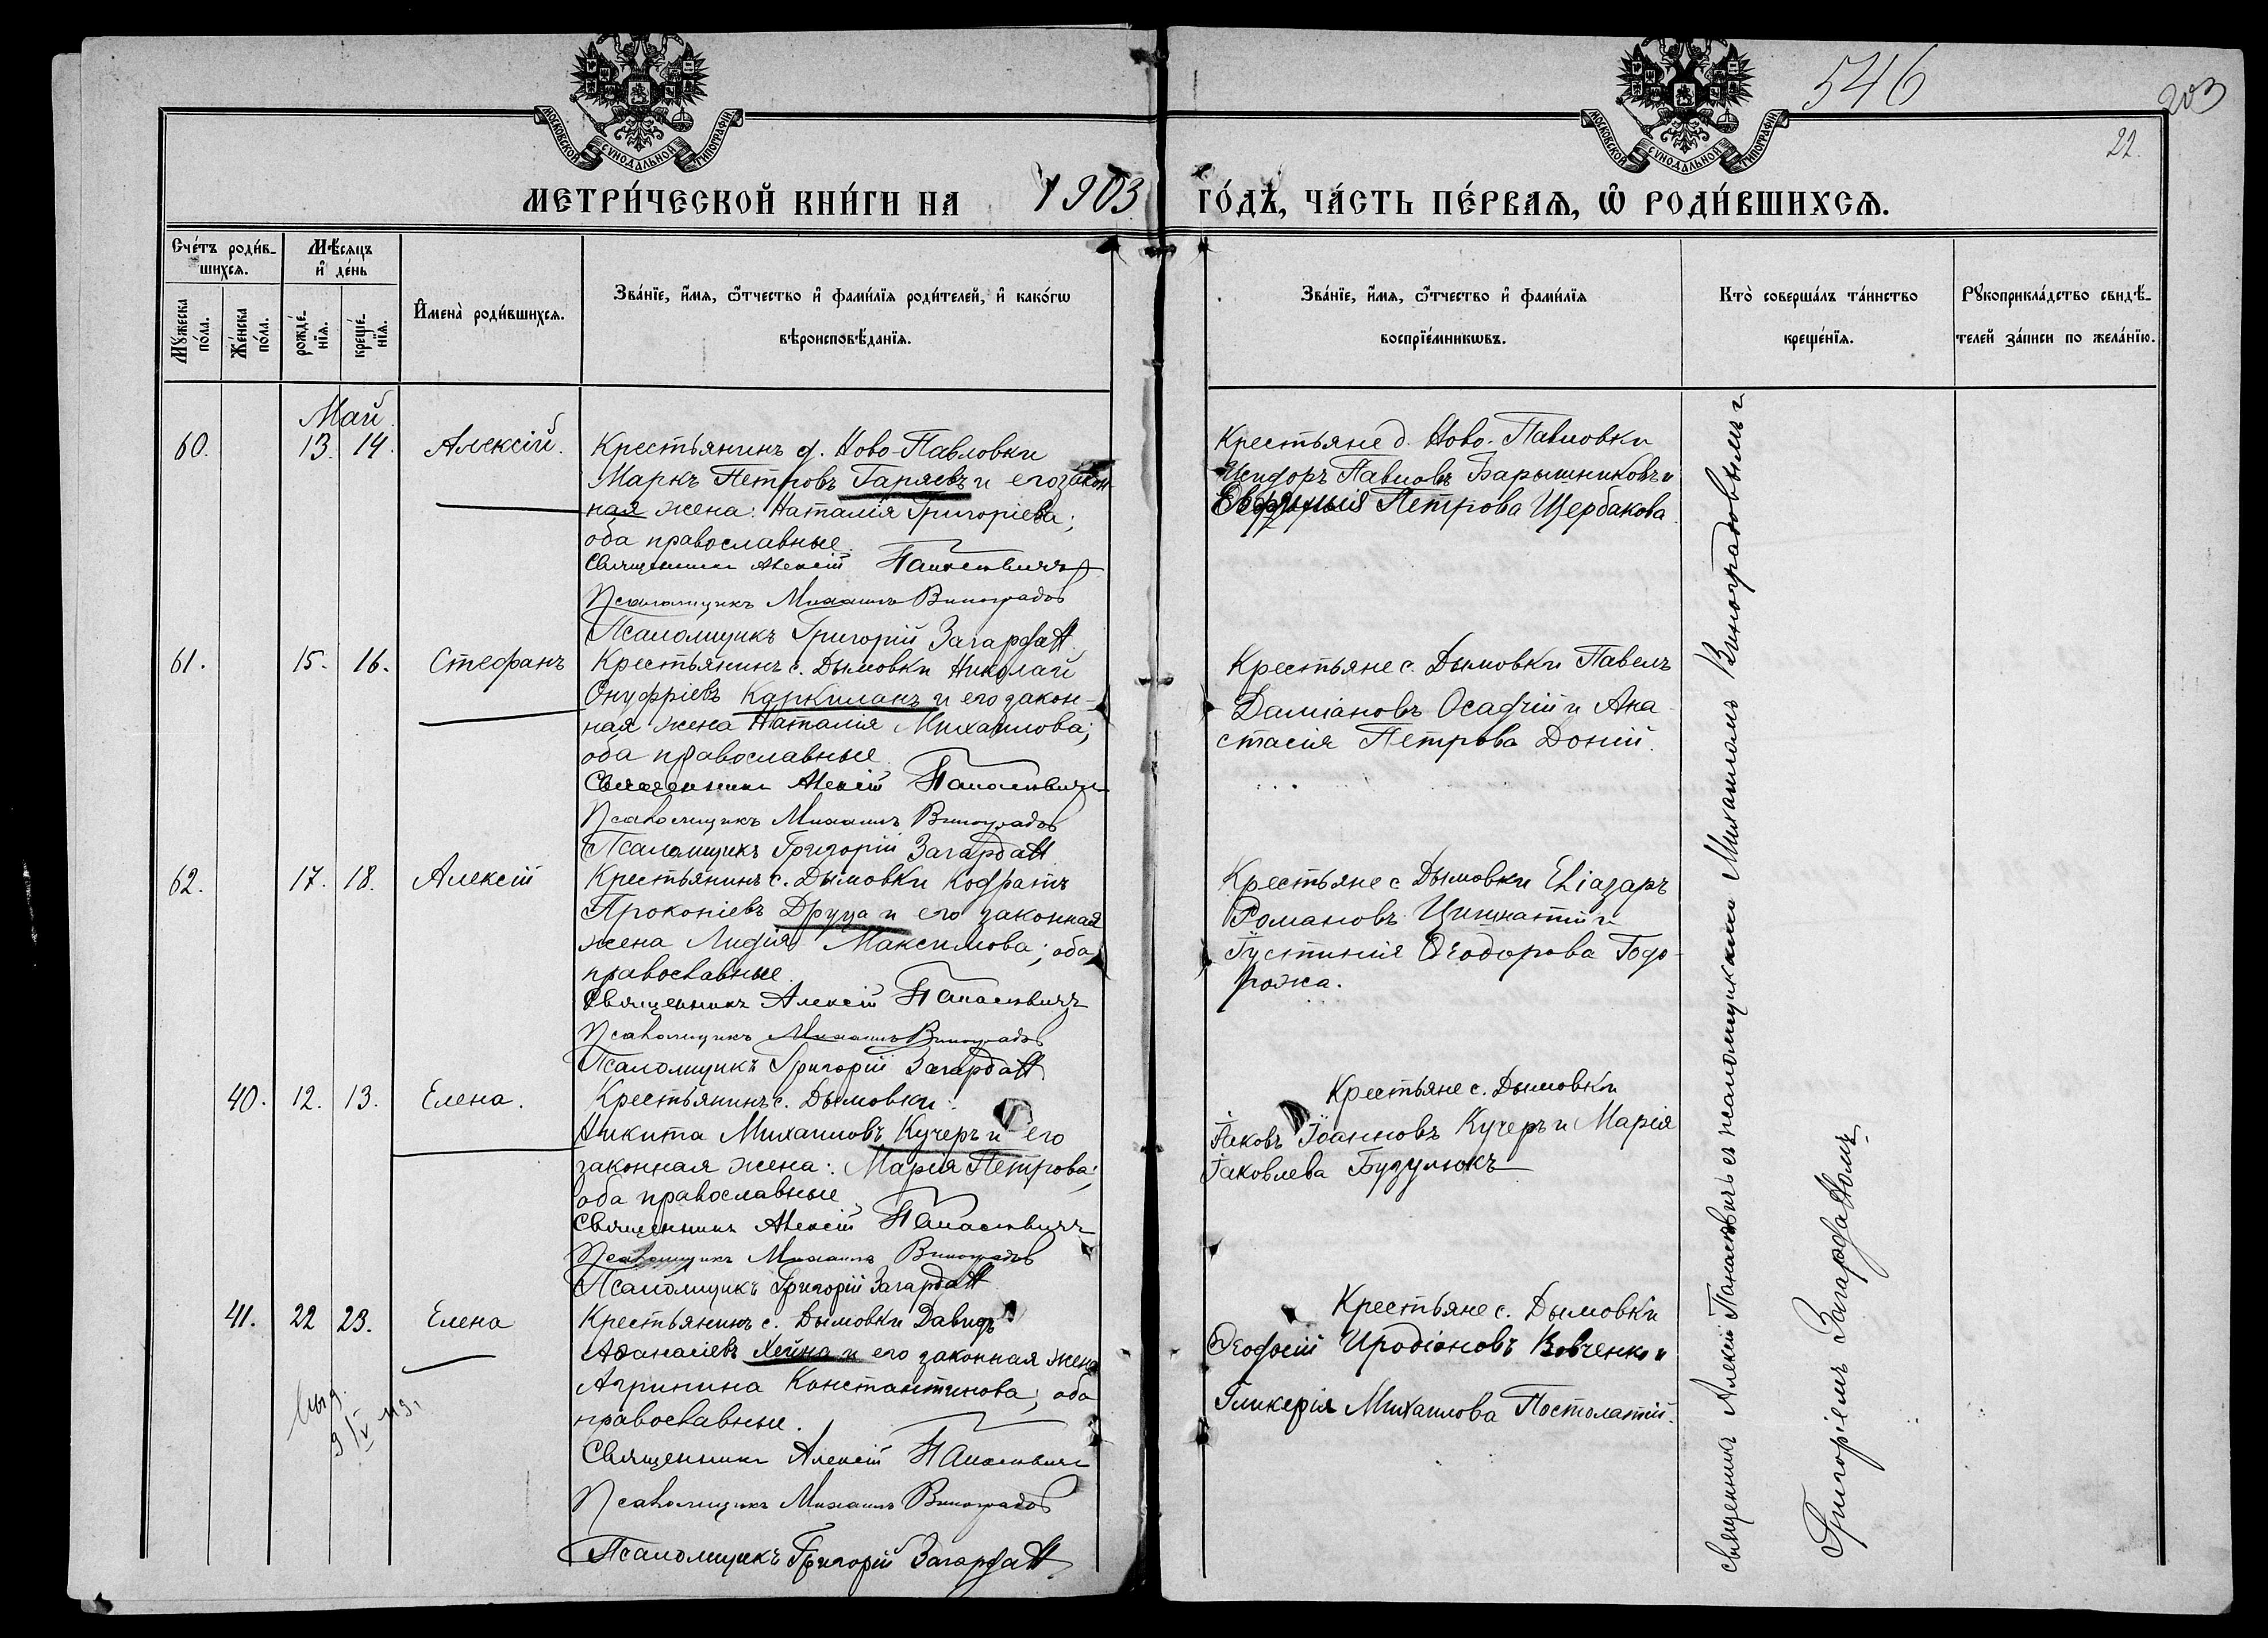 546
203
22.
МОСКОВСКОЙ СѴНОДАЛЬНОЙ ТИПОГРАФІИ
МОСКОВСКОЙ СѴНОДАЛЬНОЙ ТИПОГРАФІИ
МЕТРИ́ЧЕСКОЙ КНИ́ГИ НА 1903 ГО́ДЪ, ЧА́СТЬ ПЕ́РВАѦ, Ѡ҆ РОДИ́ВШИХСѦ.
Сче́тъ роди́в-
шихсѧ.
Мѣ́сѧцъ
и҆ де́нь
Мꙋ́жеска по́ла.
Же́нска по́ла.
рожде́-
нїѧ.
креще́-
нїѧ.
И҆мена̀ роди́вшихсѧ.
Зва́нїе, и҆́мѧ, ѻ҆́тчество и҆ фами́лїѧ роди́телей, и҆ како́гѡ
вѣроисповѣ́данїѧ.
Зва́нїе, и҆́мѧ, ѻ҆́тчество и҆ фами́лїѧ
воспрїе́мникѡвъ.
Кто̀ соверша́лъ та́инство
креще́нїѧ.
Рꙋкоприкла́дство свидѣ́-
телей за́писи по жела́нїю.
Май
60. 13. 14. Алексій.
Крестьянинъ д. Ново-Павловки
Маркъ Петровъ Гаряевъ и его закон-
ная жена: Наталія Григоріева;
оба православные.
Священникъ Алексій Панасевичъ
Псаломщикъ Михаилъ Виноградов
Псаломщикъ Григорій Загародат
Крестьяне д. Ново-Павловки
Исидоръ Павловъ Барышниковъ и
Евфимія Петрова Щербакова
61. 15. 16. Стефанъ
Крестьянинъ с. Дымовки Николай
Онуфріевъ Каркиланъ и его закон-
ная жена Наталія Михаилова;
оба православные.
Священникъ Алексій Панасевичъ
Псаломщикъ Михаилъ Виноградов
Псаломщикъ Григорій
Крестьяне с. Дымовки Павелъ
Даміановъ Осадчій и Ана-
стасія Петрова Доній.
62. 17. 18. Алексій
Крестьянинъ с. Дымовки Кодратъ
Прокопіевъ Друца и его законная
жена Лидія Максимова; оба
православные.
Священникъ Алексій Панасевичъ
Псаломщикъ Михаилъ Виноградов
Псаломщикъ Григорій
Крестьяне с Дымовки Еліазаръ
Романовъ и
Іустинія Ѳеодорова Тодо-
рожа.
40. 12. 13. Елена.
Крестьянинъ с. Дымовки:
Никита Михаиловъ Кучеръ и его
законная жена: Марія Петрова;
оба православные
Священникъ Алексій Панасевичъ
Псаломщикъ Михаилъ Виноградов
Псаломщикъ Григорій
Крестьяне с. Дымовки
Іаковъ Іоанновъ Кучеръ и Марія
Іаковлева Бузулюкъ
41. 22 23. Елена
Крестьянинъ с. Дымовки Давидъ
Аѳанасіевъ Хейна и его законная жена
Агрипина Константинова; оба
православные.
Священникъ Алексій Панасевичъ
Псаломщикъ Михаилъ Виноградов
Псаломщикъ Григорій
Крестьяне с. Дымовки
Ѳеодосій Иродіоновъ Вовченко и
Гликерія Михаилова Постолатій.
Священникъ Алексій Панасевичъ съ псаломщиками Михаиломъ Виноградовымъ и
Григоріемъ